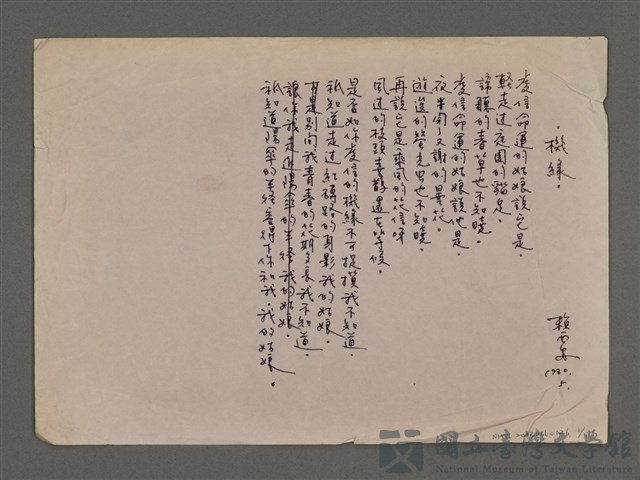 ·機緣·
賴西安
1980.5.
虔信命運的姑娘說它是·
輕走過庭園的貓足·
諦聽的春草也不知曉·
虔信命運的姑娘說他是·
夜半開了又謝的曇花·
遊逡的螢光虫也不知曉·
再說它是乘風的花信呀
風過的枝頭青鬱還在等候·
是否如你虔信的機緣不可捉摸我不知道·
祇知道走過紅磚路的身影我的姑娘·
有是別問我青春的花期多長我不知道·
讓你我走進陽傘的半徑我的姑娘·
祇知道陽傘的半徑容得下你和我·我的姑娘·
國立臺灣文學館
National Museum of Taiwan Literature